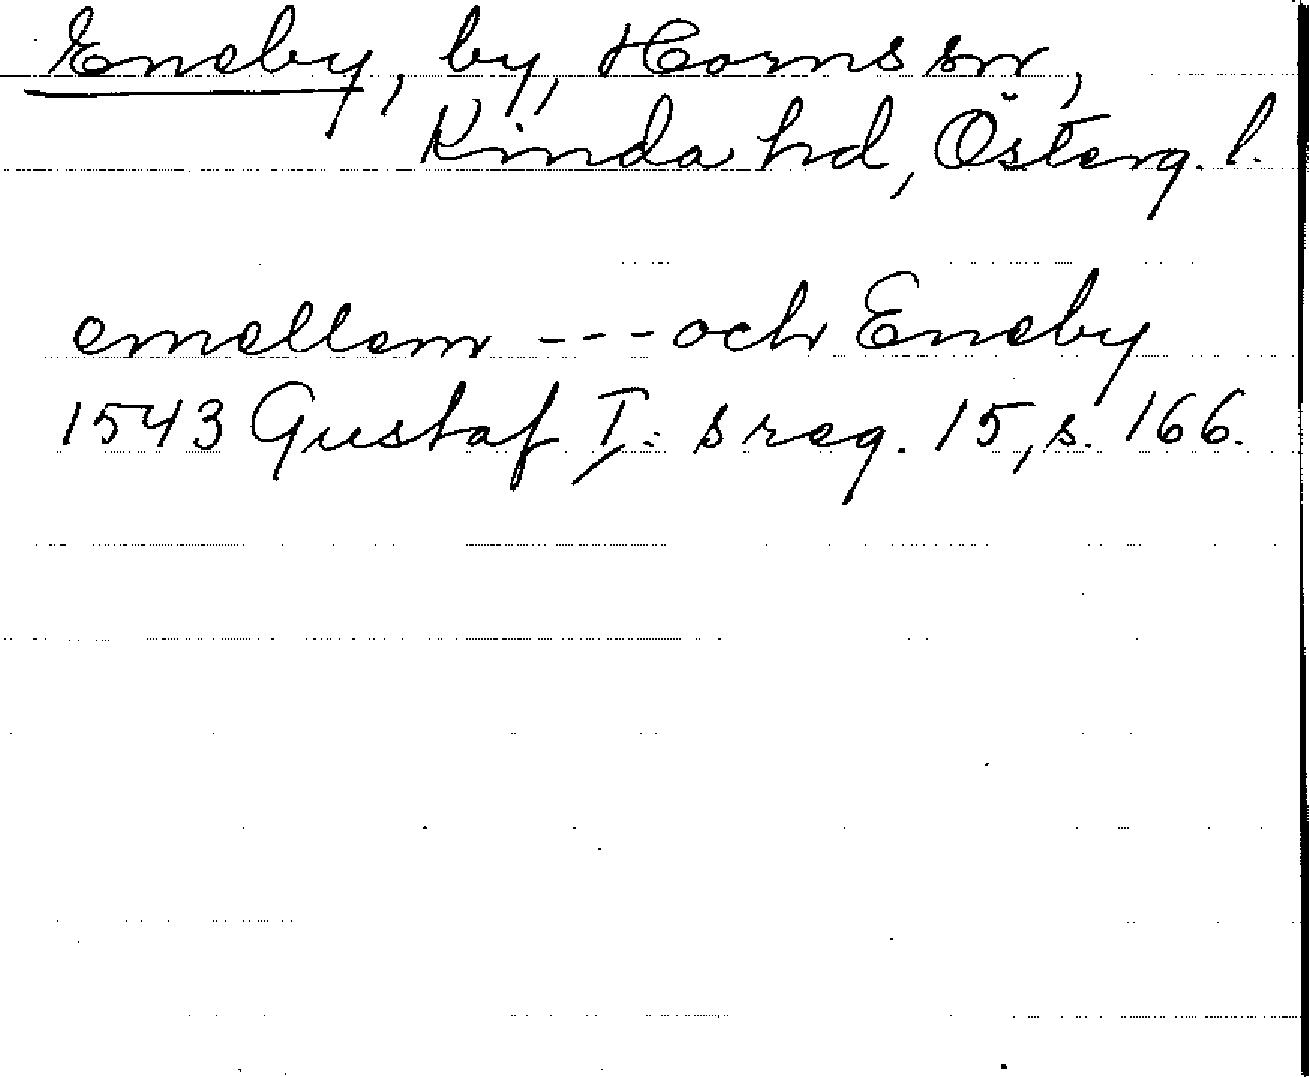 Eneby, by, Horns sn,
Kinda hd, Österg. l.
emellem --- och Eneby
1543 Gustaf I:s reg. 15, s. 166.